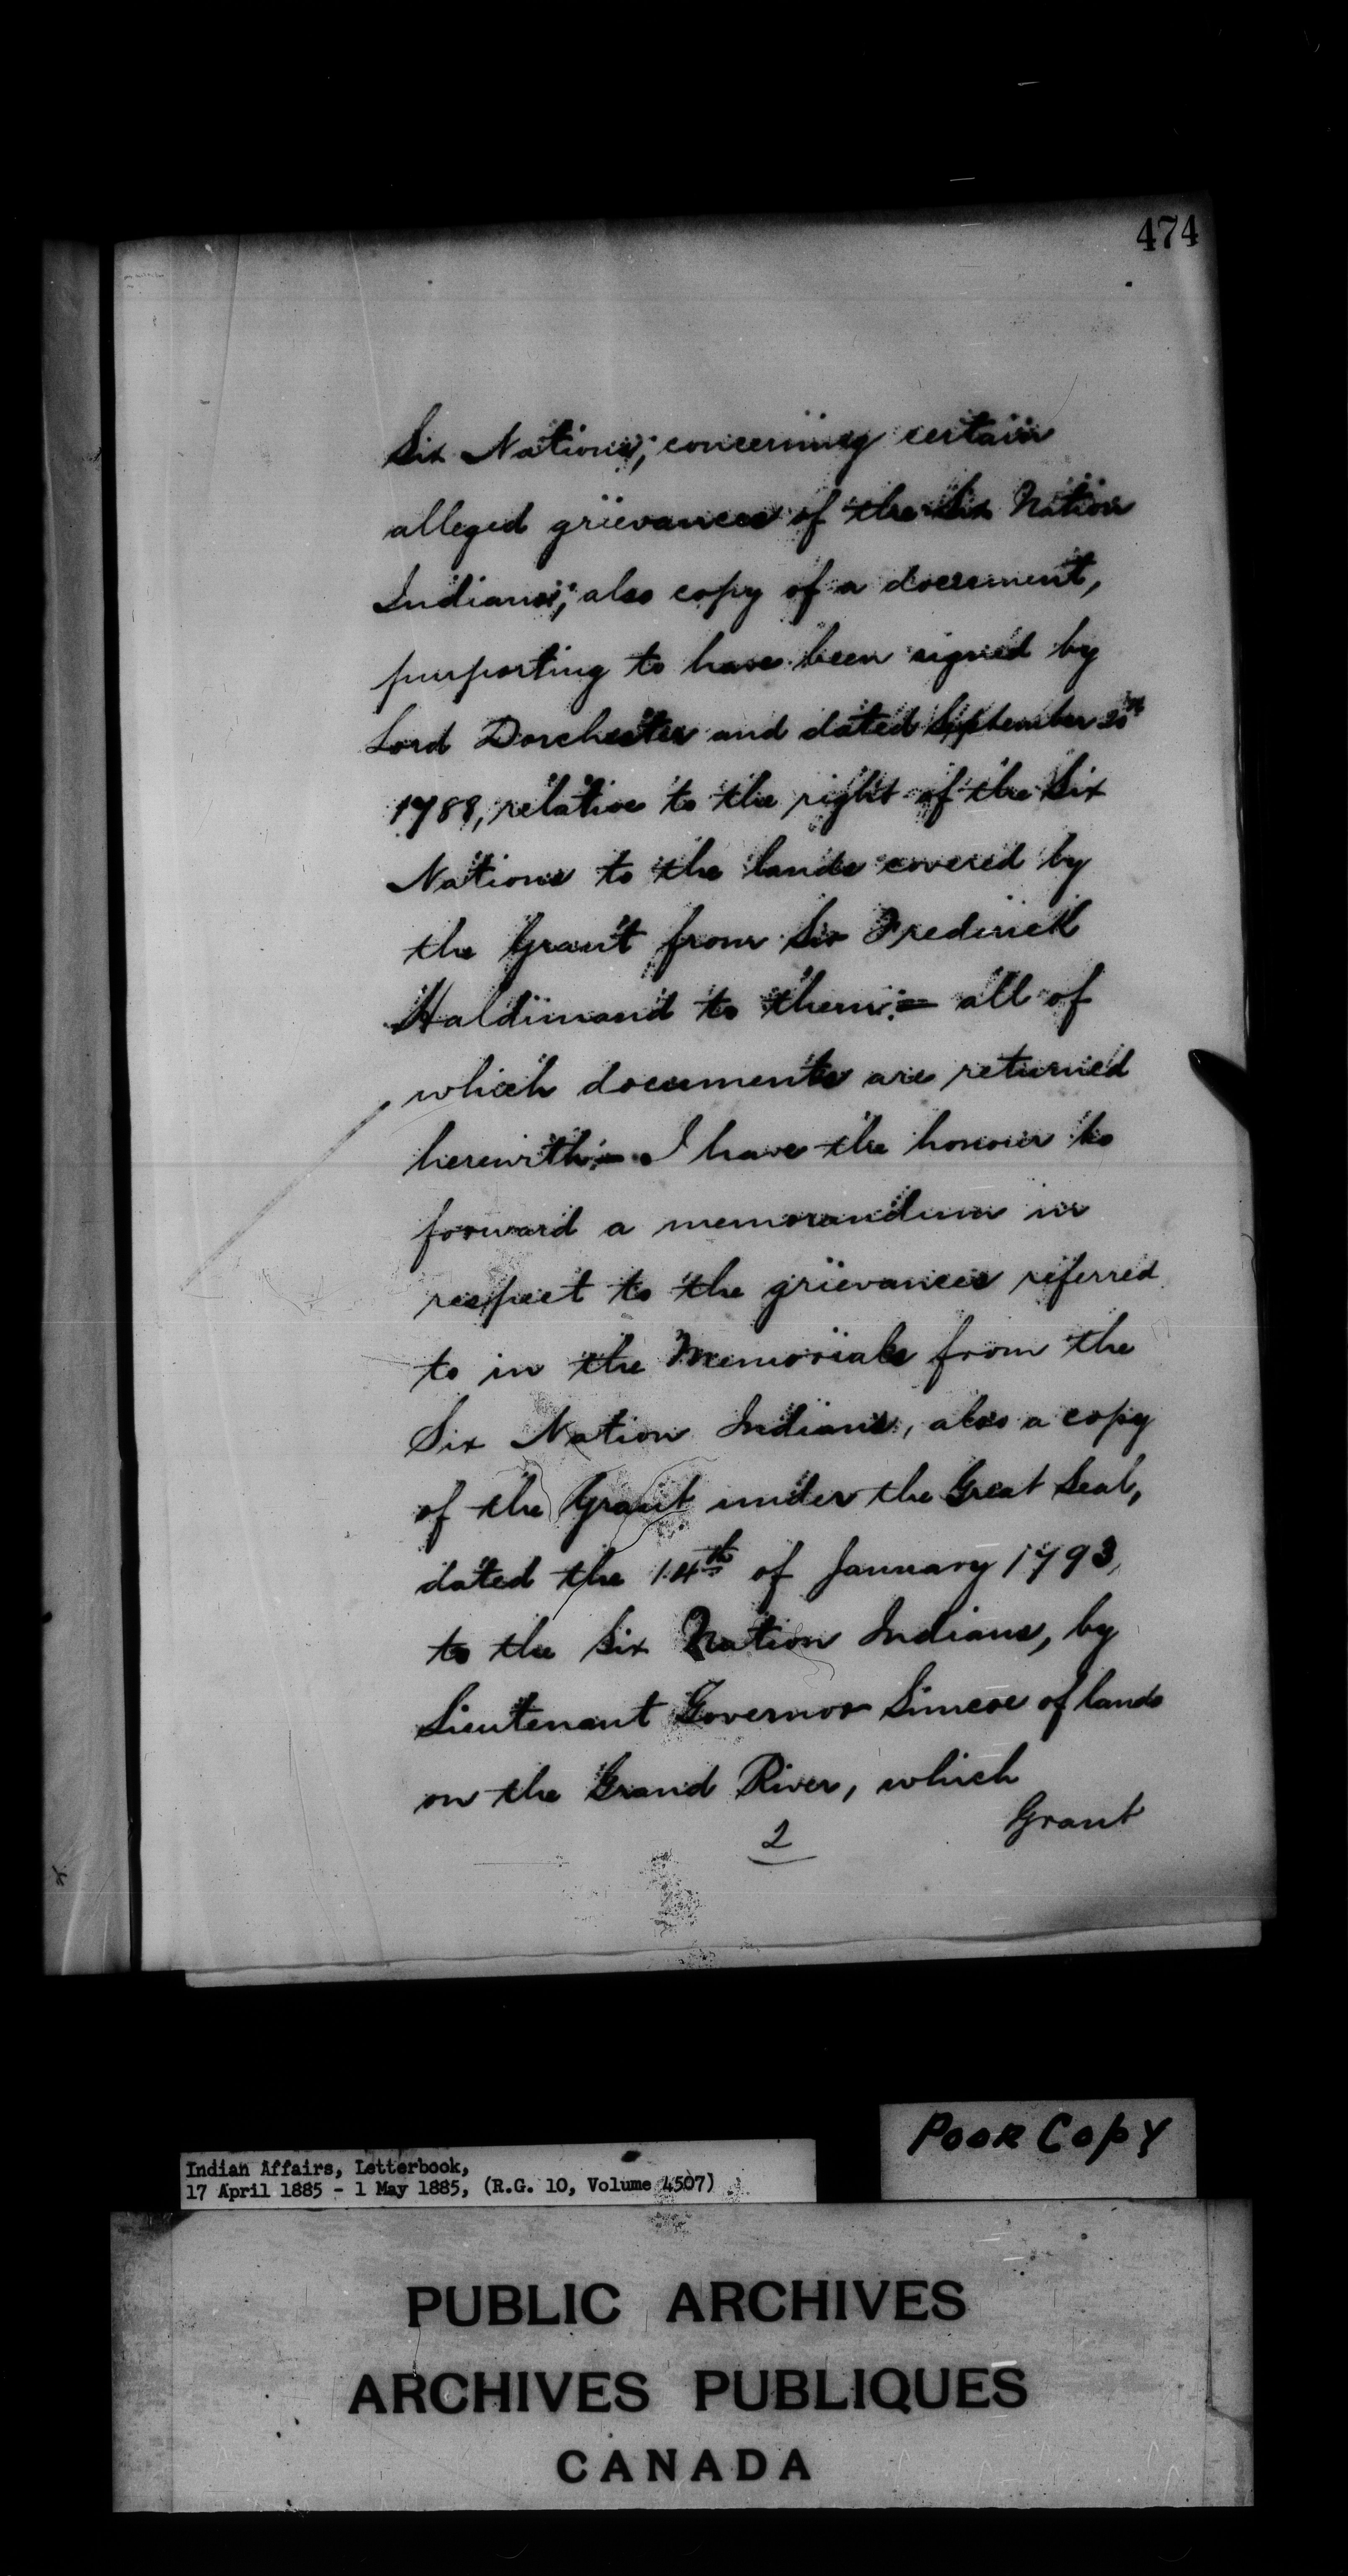 474
Six Nations; concerning certain
alleged grievances of the Six Nation
Indians; also copy of a document,
purporting to have been signed by
Lord Dorchester and dated September 20th
1788, relative to the right of the Six
Nations to the lands covered by
the Grant from Sir Frederick
Haldimand to them; = all of
which documents are returned
herewith; - I have the honour to
forward a memorandum in
respect to the grievances referred
to in the Memorials from the
Six Nation Indians, also a copy
of the Grant under the Great Seal,
dated the 14th of January 1793,
to the Six Nation Indians, by
Lieutenant Governor Simcoe of lands
on the Grand River, which
Grant
2
Poor Copy
Indian Affairs, Letterbook,
17 April 1885 - 1 May 1885, (R.G. 10, Volume 4507)
PUBLIC ARCHIVES
ARCHIVES PUBLIQUES
CANADA